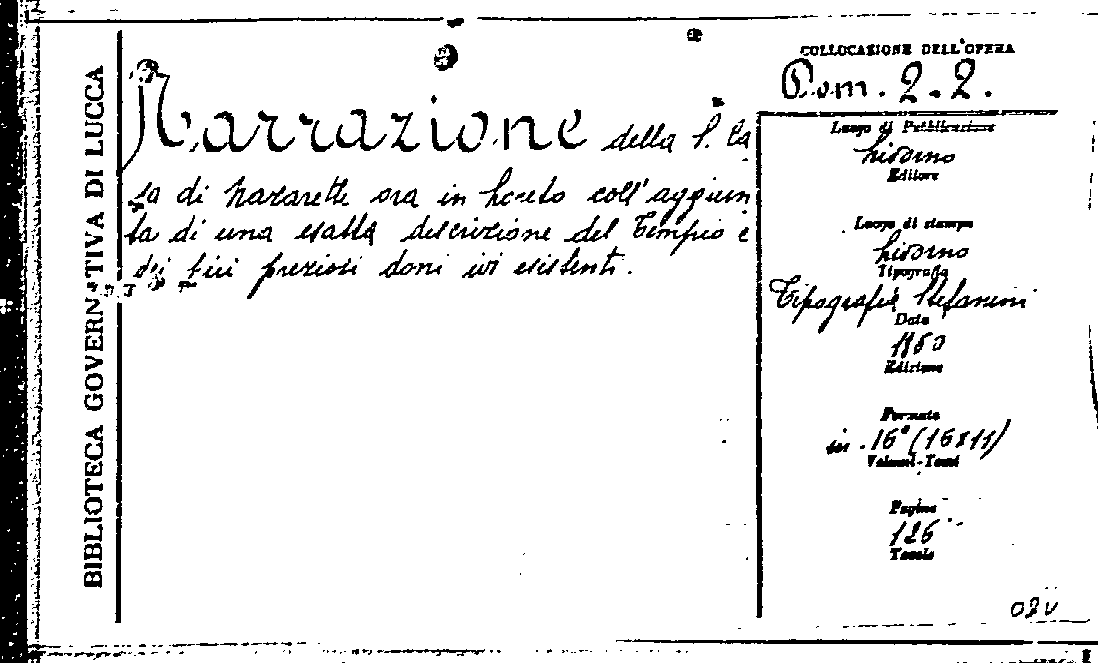 BIBLIOTECA GOVERNATIVA DI LUCCA
Narrazione della S. Ca
sa di Nazarette ora in Loreto coll'aggiun
ta di una esatta descrizione del Tempio e
dei più preziosi doni ivi esistenti.
COLLOCAZIONE DELL'OPERA
Pom. 2.2.
Luogo di Pubblicazione
Livorno
Editore
Luogo di stampa
Livorno
Tipografia
Tipografia Stefanini
Data
Edizione
Formato
in .16° (16x11)
Volumi-Tomi
Pagine
126
Tavole